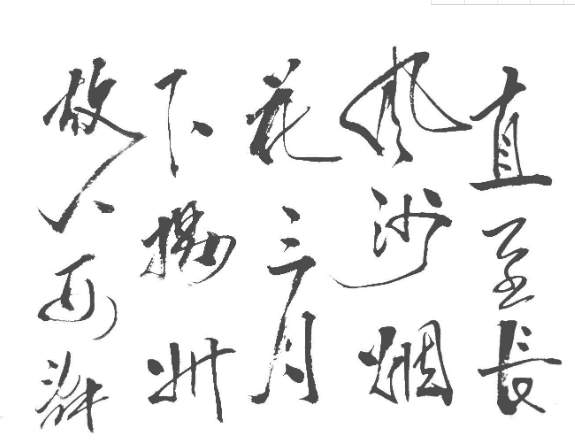 直至長
风沙烟
花三月
下揚州
故人西辞